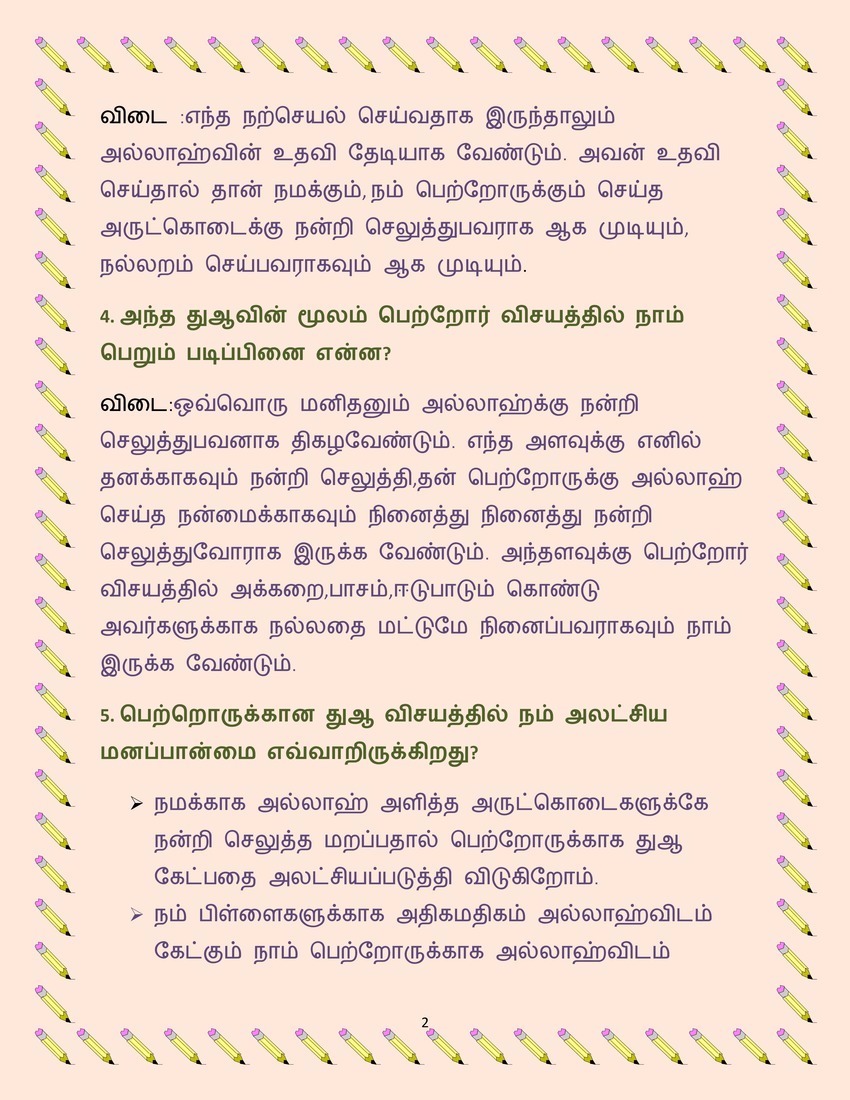 விடை :எந்த நற்செயல் செய்வதாக இருந்தாலும்
அல்லாஹ்வின் உதவி தேடியாக வேண்டும். அவன் உதவி
செய்தால் தான் நமக்கும்,நம் பெற்றோருக்கும் செய்த
அருட்கொடைக்கு நன்றி செலுத்துபவராக ஆக முடியும்,
நல்லறம் செய்பவராகவும் ஆக முடியும்.
4. அந்த துஆவின் மூலம் பெற்றோர் விசயத்தில் நாம்
பெறும் படிப்பினை என்ன?
விடை:ஒவ்வொரு மனிதனும் அல்லாஹ்க்கு நன்றி
செலுத்துபவனாக திகழவேண்டும். எந்த அளவுக்கு எனில்
தனக்காகவும் நன்றி செலுத்தி,தன் பெற்றோருக்கு அல்லாஹ்
செய்த நன்மைக்காகவும் நினைத்து நினைத்து நன்றி
செலுத்துவோராக இருக்க வேண்டும். அந்தளவுக்கு பெற்றோர்
விசயத்தில் அக்கறை,பாசம்,ஈடுபாடும் கொண்டு
அவர்களுக்காக நல்லதை மட்டுமே நினைப்பவராகவும் நாம்
இருக்க வேண்டும்.
5. பெற்றொருக்கான துஆ விசயத்தில் நம் அலட்சிய
மனப்பான்மை எவ்வாறிருக்கிறது?
➢ நமக்காக அல்லாஹ் அளித்த அருட்கொடைகளுக்கே
நன்றி செலுத்த மறப்பதால் பெற்றோருக்காக துஆ
கேட்பதை அலட்சியப்படுத்தி விடுகிறோம்.
➢ நம் பிள்ளைகளுக்காக அதிகமதிகம் அல்லாஹ்விடம்
கேட்கும் நாம் பெற்றோருக்காக அல்லாஹ்விடம்
2